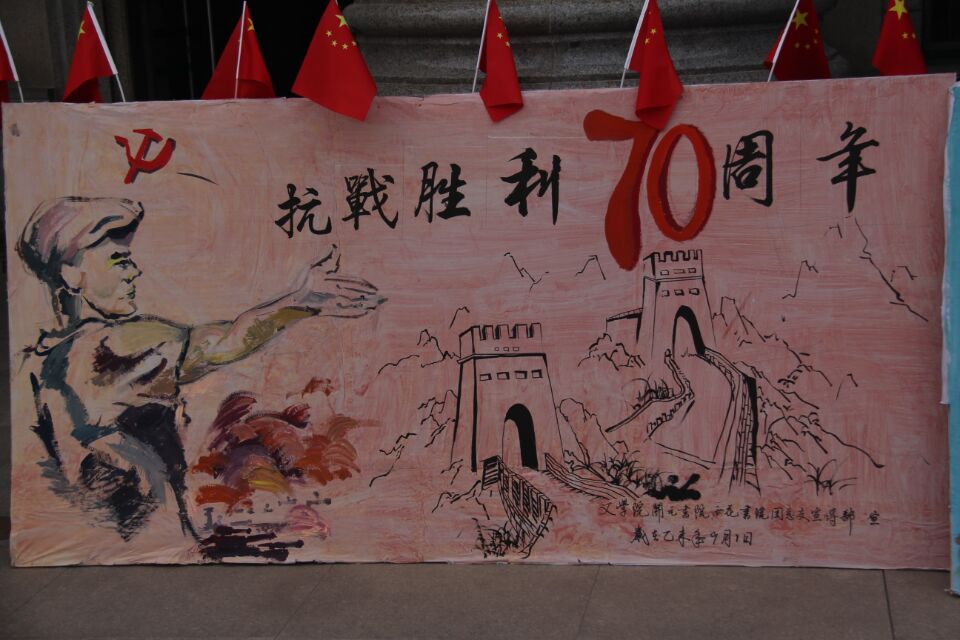 抗戰胜利70周年
文学院開元書院西花書院团总支宣傳部 宣
歲在乙未年9月1日